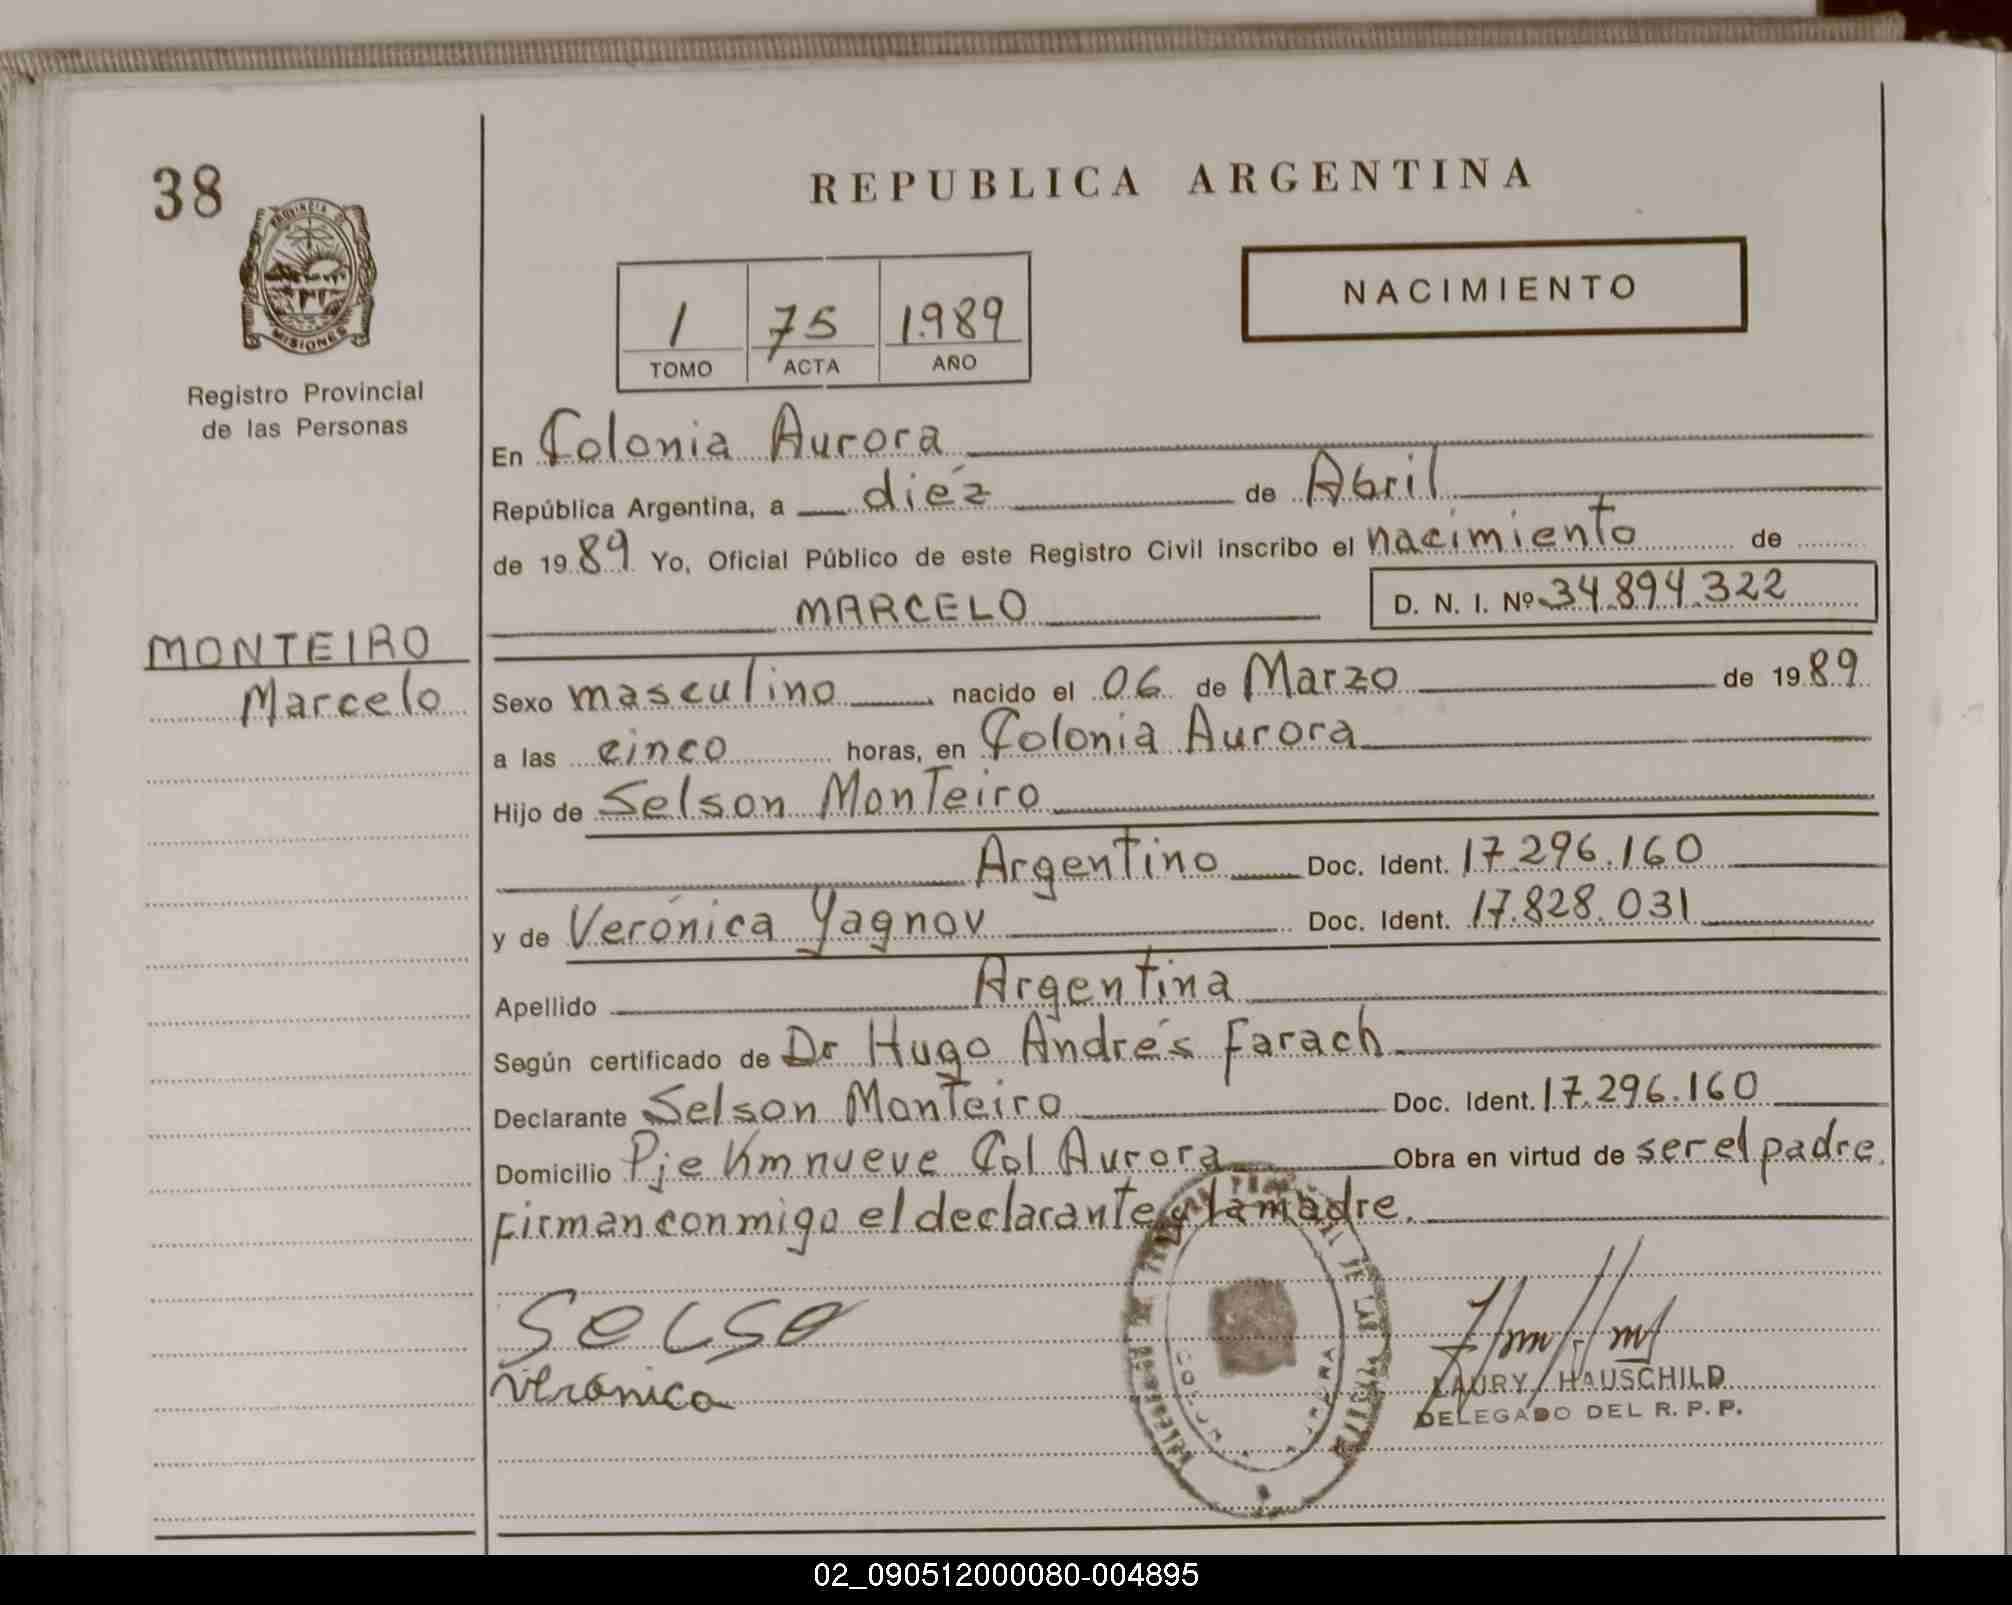 38
REPUBLICA ARGENTINA
PROVINCIA DE
MISIONES
Registro Provincial
de las Personas
1 75 1.989
TOMO ACTA AÑO
NACIMIENTO
En Colonia Aurora
República Argentina, a diéz de Abril
de 19 89 Yo, Oficial Público de este Registro Civil inscribo el nacimiento de
MARCELO D. N. I. Nº 34.894.322
MONTEIRO
Marcelo
Sexo masculino nacido el 06 de Marzo de 19 89
a las cinco horas, en Colonia Aurora
Hijo de Selson Monteiro
Argentino Doc. Ident. 17.296.160
y de Verónica Yagnov Doc. Ident. 17.828.031
Apellido Argentina
Según certificado de Dr Hugo Andrés Farach
Declarante Selson Monteiro Doc. Ident. 17.296.160
Domicilio Pje Km nueve Col Aurora Obra en virtud de ser el padre.
Firman conmigo el declarante y la madre.
Selso
Verónica
DE LAS
COLONIA AURORA
LAURY HAUSCHILD
DELEGADO DEL R. P. P.
02_090512000080-004895